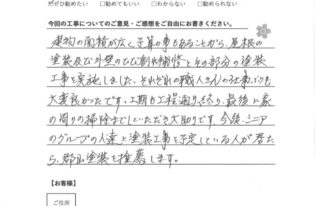 ☑ぜひ勧めたい □勧めてもいい □わからない □勧めない
今回の工事についてのご意見・ご感想をご自由にお書きください。
建物の面積が広く、予算の事もあることから、屋根の
塗装及び外壁のひび割れ補修とその部分の塗装
工事を実施しました。それぞれの職人さんの仕事ぶりも
大変良かったです。工期も工程通りきっちり、最後に家
の周りの掃除までしていただき大助かりです。今後、シニア
のグループの人達に塗装工事を予定している人が居たら
、郡山塗装を推薦します。
【お客様】
ご住所